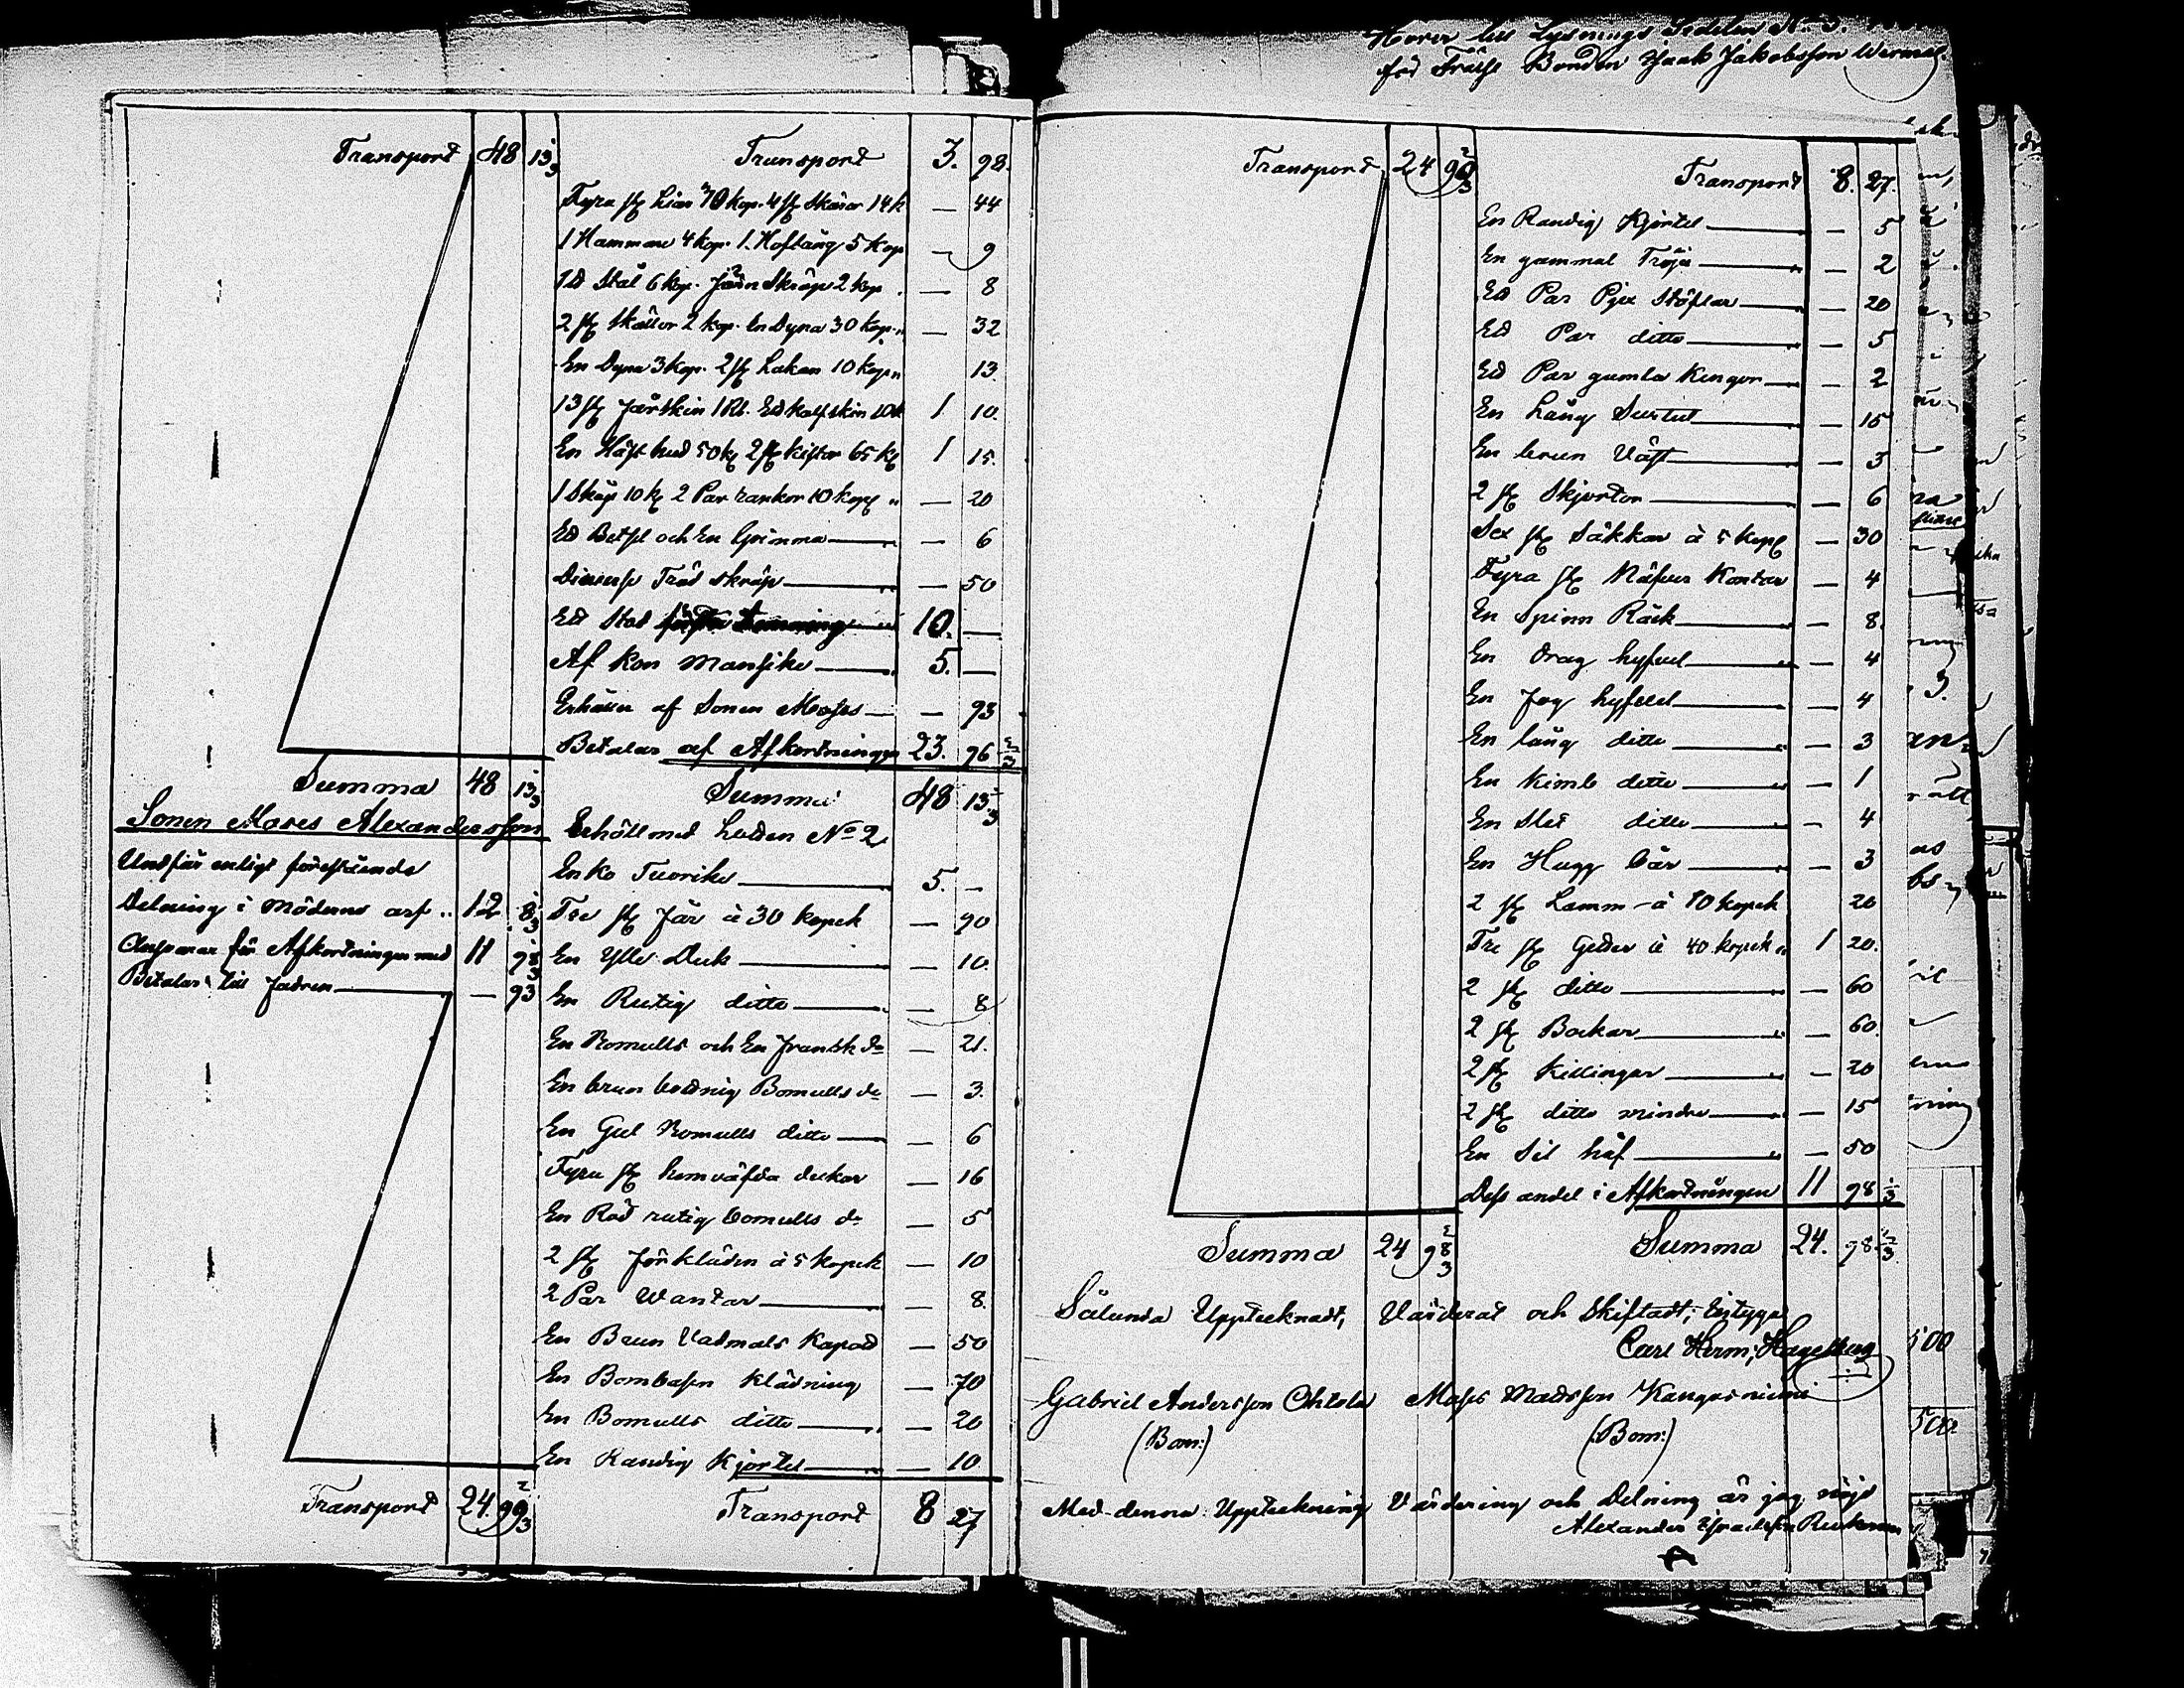 Transport 48 13 1/3
Summa 48 13 1/3
Sonen Moses Alexandersson
Undfår enligt föreстående
Delning i Möderne arf 12
Ansvarar för Afkortningen med 11 98 1/3
Betalar till fadren — 93
Transport 24. 99 2/3
Transport 3. 98.
Fyra st Liar 30 kop. 4 st Skäror 14 k — 44
1 Hammare 4 kop. 1 Hoftång 5 kop — 9
1 ℔ Stål 6 kop. Järn Skräp 2 kop — 8
2 st Skällor 2 kop. En Dyna 30 kop. — 32
En Dyna 3 kop. 2 st Lakan 10 kop 13.
13 st Fårskin 1 Rb. Ett kalfskin 10 k 1 10.
En Häst hud 50 k 2 st kistor 65 k 1 15.
1 Skåp 10 k 2 Par rankor 10 kop — 20
Ett Betsel och En Grimma — 6
Diverse Träd skräp — 50
Ett Stod 10. —
Af Kon Mansike 5. —
Erhåller af Sonen Moses — 93
Betalar af Afkortningen 23. 96 2/3
Summa 48 13 1/3
Erhöll med Lotten No 2
En Ko Tuorike 5. —
Tre st Får à 30 kopek — 90
En Ylle Duk — 10.
En Rutig ditto — 8
En Bomulls och En Fransk do — 21.
En brun bottnig Bomulls do — 3.
En Gul Bomulls ditto — 6
Fyra st hemväfda dukar — 16
En Röd rutig bomulls do — 5
2 st Förkläden à 5 kopek — 10
2 Par Wantar — 8.
En Brun Vadmals Kapott — 50
En Bombasin klädning — 70
En Bomulls ditto — 20
En Randig Kjortel — 10
Transport 8 27
Hörer till Lysnings Sedelen No 3.
för Frälse Bonden Isaak Jakobsson Wermä
Transport 24 99 2/3
Summa 24 98 2/3
Transport 8. 27.
En Randig Kjortel — 5
En gammal Tröja — 2
Ett Par Pjex Stöflar — 20
Ett Par ditto — 5
Ett Par gamla Kengor — 2
En Lång Surtut — 15
En brun Väst — 3
2 st Skjortor — 6
Sex st Säkkar à 5 kop — 30
Fyra st Näfver Kontar — 4
En Spinn Råck — 8.
En Drag hyfvel — 4
En Fog hyfvel — 4
En lång ditto — 3
En Kimb ditto — 1
En Slet ditto — 4
En Hugg bår — 3
2 st Lamm à 10 kopek 20
Tre st Getter à 40 kopek 1 20.
2 st ditto — 60
2 st Bockar — 60.
2 st Killingar — 20
2 st ditto mindre — 15
En Sil håf — 50
Dess andel i Afkortningen 11 98 1/3
Summa 24. 98. 2/3
Sålunda Upptecknadt, Värderat och Skiftadt; Intyga
Carl Herm. Hagelberg
Gabriel Andersson Ohtola Moses Mattsson Kangasniemi
(Bom:) (Bom:)
Med denna Uppteckning Värdering och Delning är jag nöjd
Alexander Israelsson Ruokonen